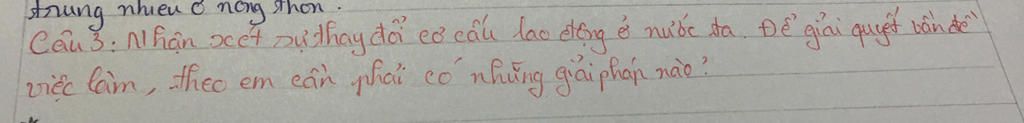 trung nhiều ở nông thôn.
Câu 3: Nhận xét sự thay đổi cơ cấu lao động ở nước ta. Để giải quyết vấn đề
việc làm, theo em cần phải có những giải pháp nào?